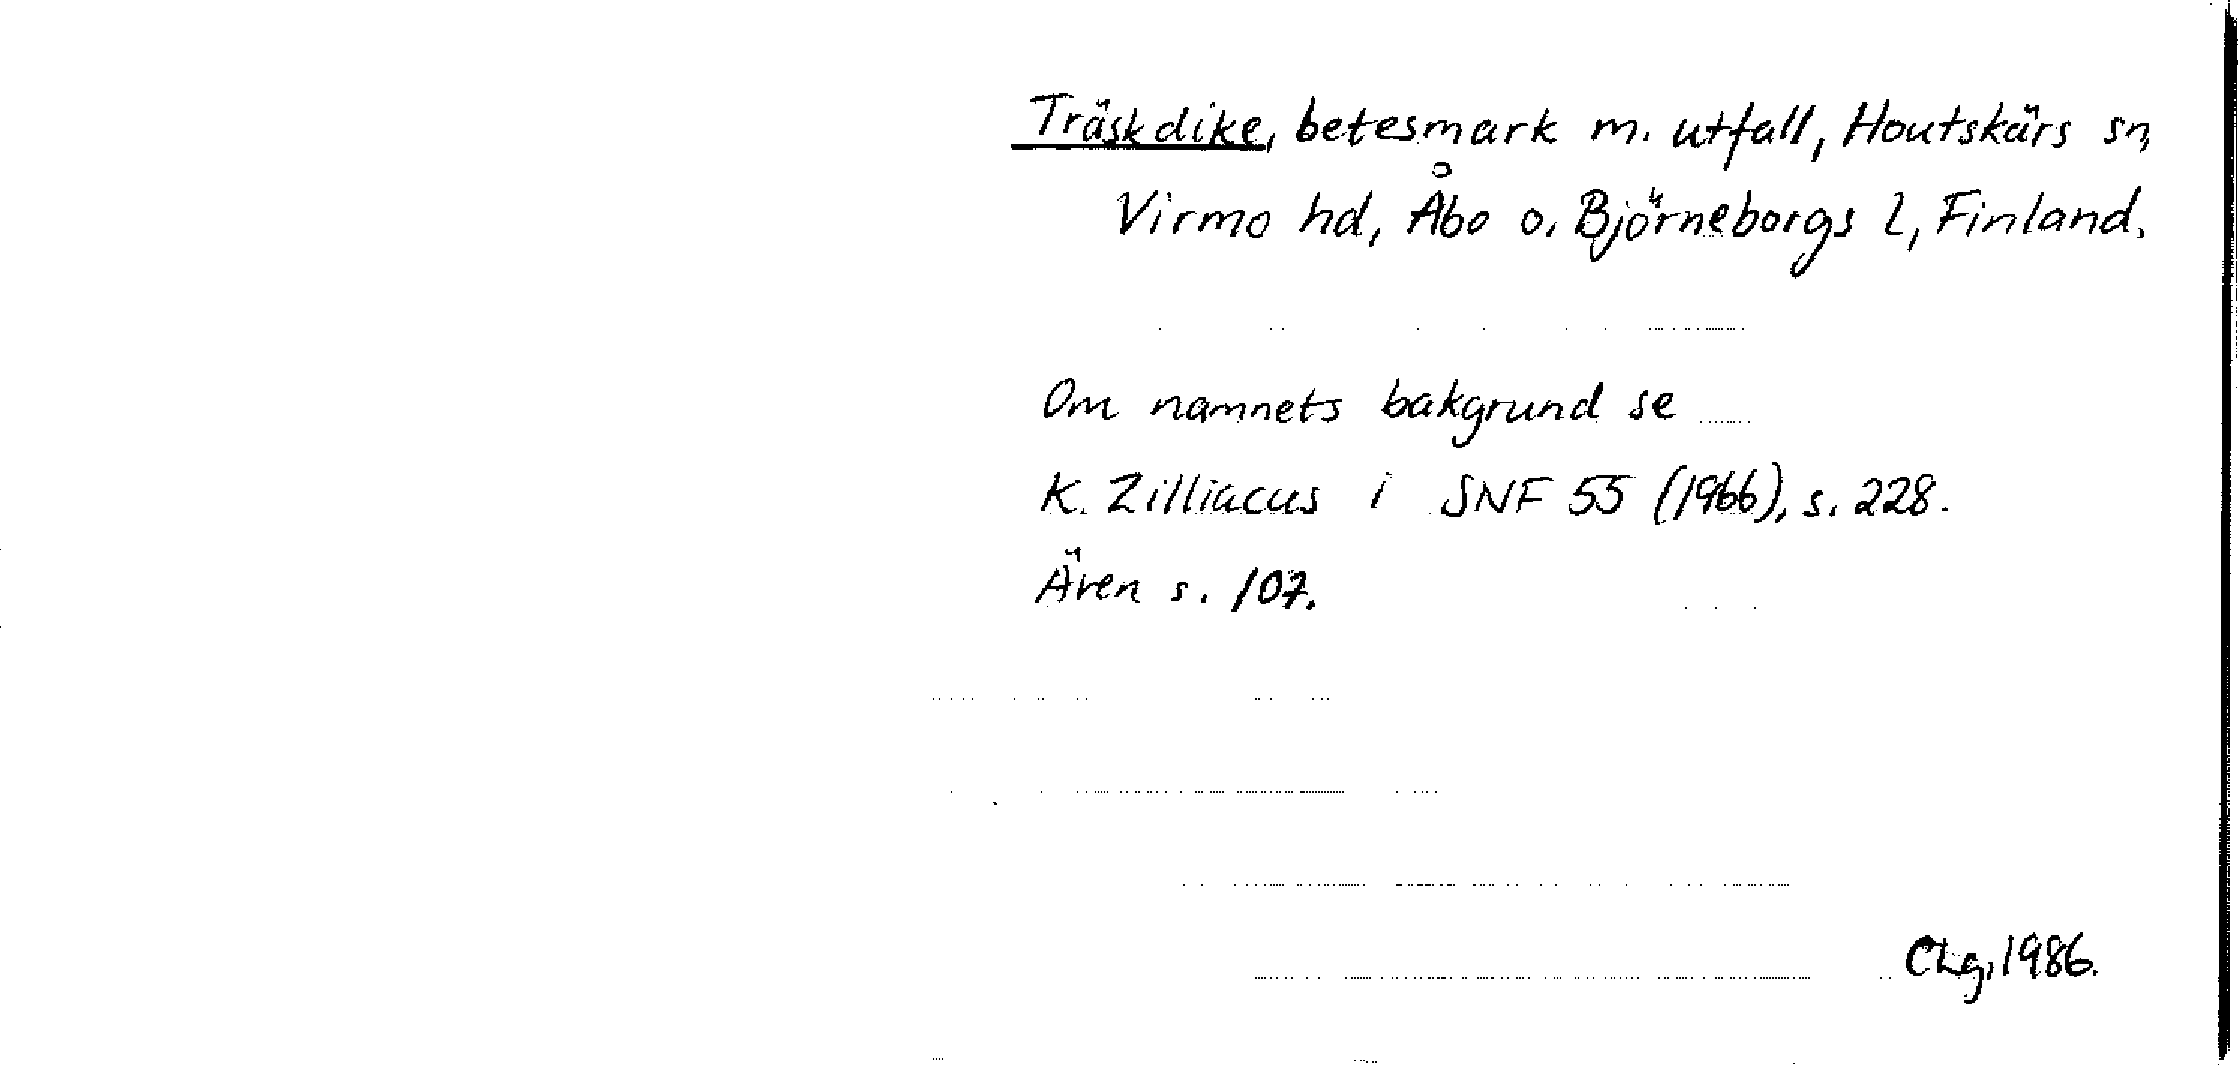 Träskdike, betesmark m. utfall, Houtskärs sn,
Virmo hd, Åbo o. Björneborgs l, Finland.
Om namnets bakgrund se
K. Zilliacus i SNF 55 (1966), s. 228.
Även s. 107.
CLg, 1986.